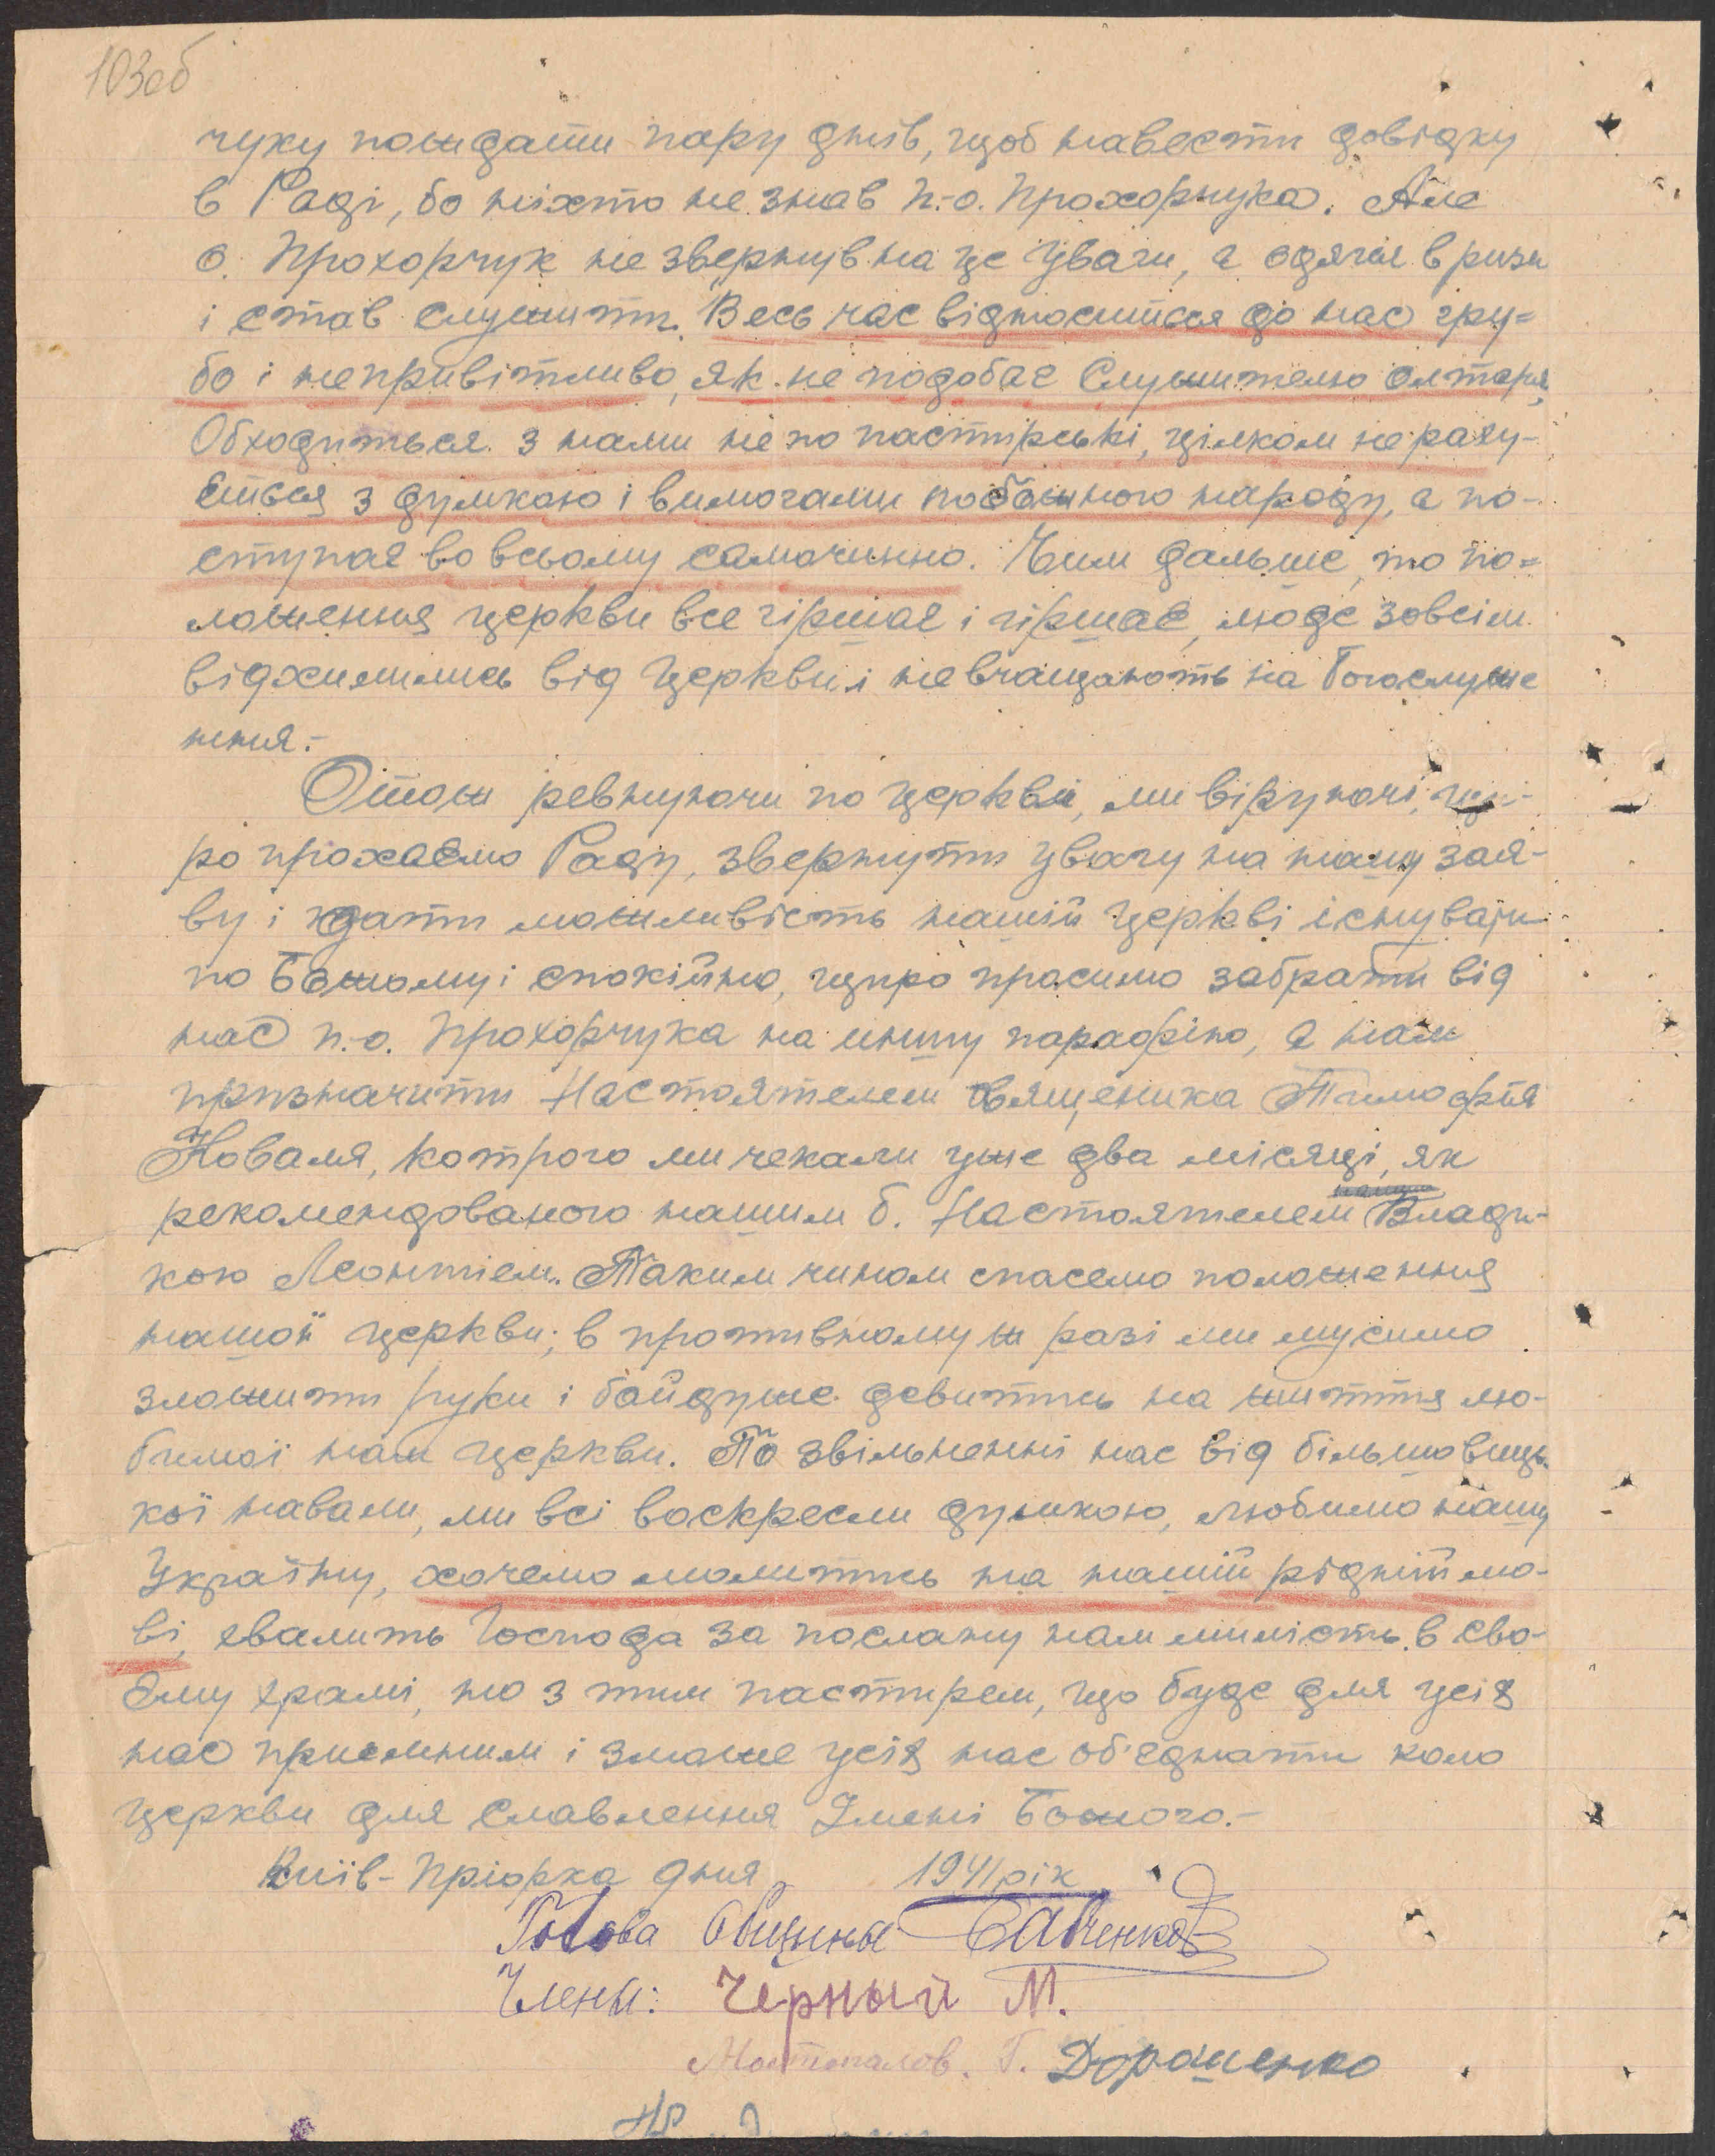 103об
чуку пождати пару днів, щоб навести довідку
в Раді, бо ніхто не знав п.-о. Прохорчука. Але
о. Прохорчук не звернув на це уваги, а одягся в ризи
і став служити. Весь час відноситься до нас гру=
бо і непривітливо, як не подобає Служителю олтаря,
Обходиться з нами не по пастирські, цілком не раху-
ється з думкою і вимогами побожного народу, а по-
ступає во всьому самочинно. Чим дальше, то по=
ложення церкви все гіршає і гіршає, люде зовсім
відхилились від Церкви і не вчащають на Богослуже
ння.-
Отож ревнуючи по церкві, ми віруючі, щи-
ро прохаємо Раду, звернути увагу на нашу зая-
ву і дати можливість нашій церкві існувати
по Божому і спокійно, щиро просимо забрати від
нас п.-о. Прохорчука на иншу парафію, а нам
призначити Настоятелем священика Тимофія
Коваля, котрого ми чекали уже два місяці, як
рекомендованого нашим б. Настоятелем Влади-
кою Леонтієм. Таким чином спасемо положення
нашої церкви; в противному ж разі ми мусимо
зложити руки і байдуже девитись на життя лю-
бимої нам церкви. По звільненні нас від більшовиць-
кої навали, ми всі воскресли думкою, любимо нашу
Україну, хочемо молитись на нашій рідній мо-
ві, хвалить Господа за послану нам милість в сво-
єму храмі, но з тим пастирем, що буде для усіх
нас приємним і зможе усіх нас об'єднати коло
церкви для славлення Імені Божого.-
Київ-Пріорка дня 1941 рік
Голова Общины Савченко
Члены: Черный М.
Г. Дорошенко